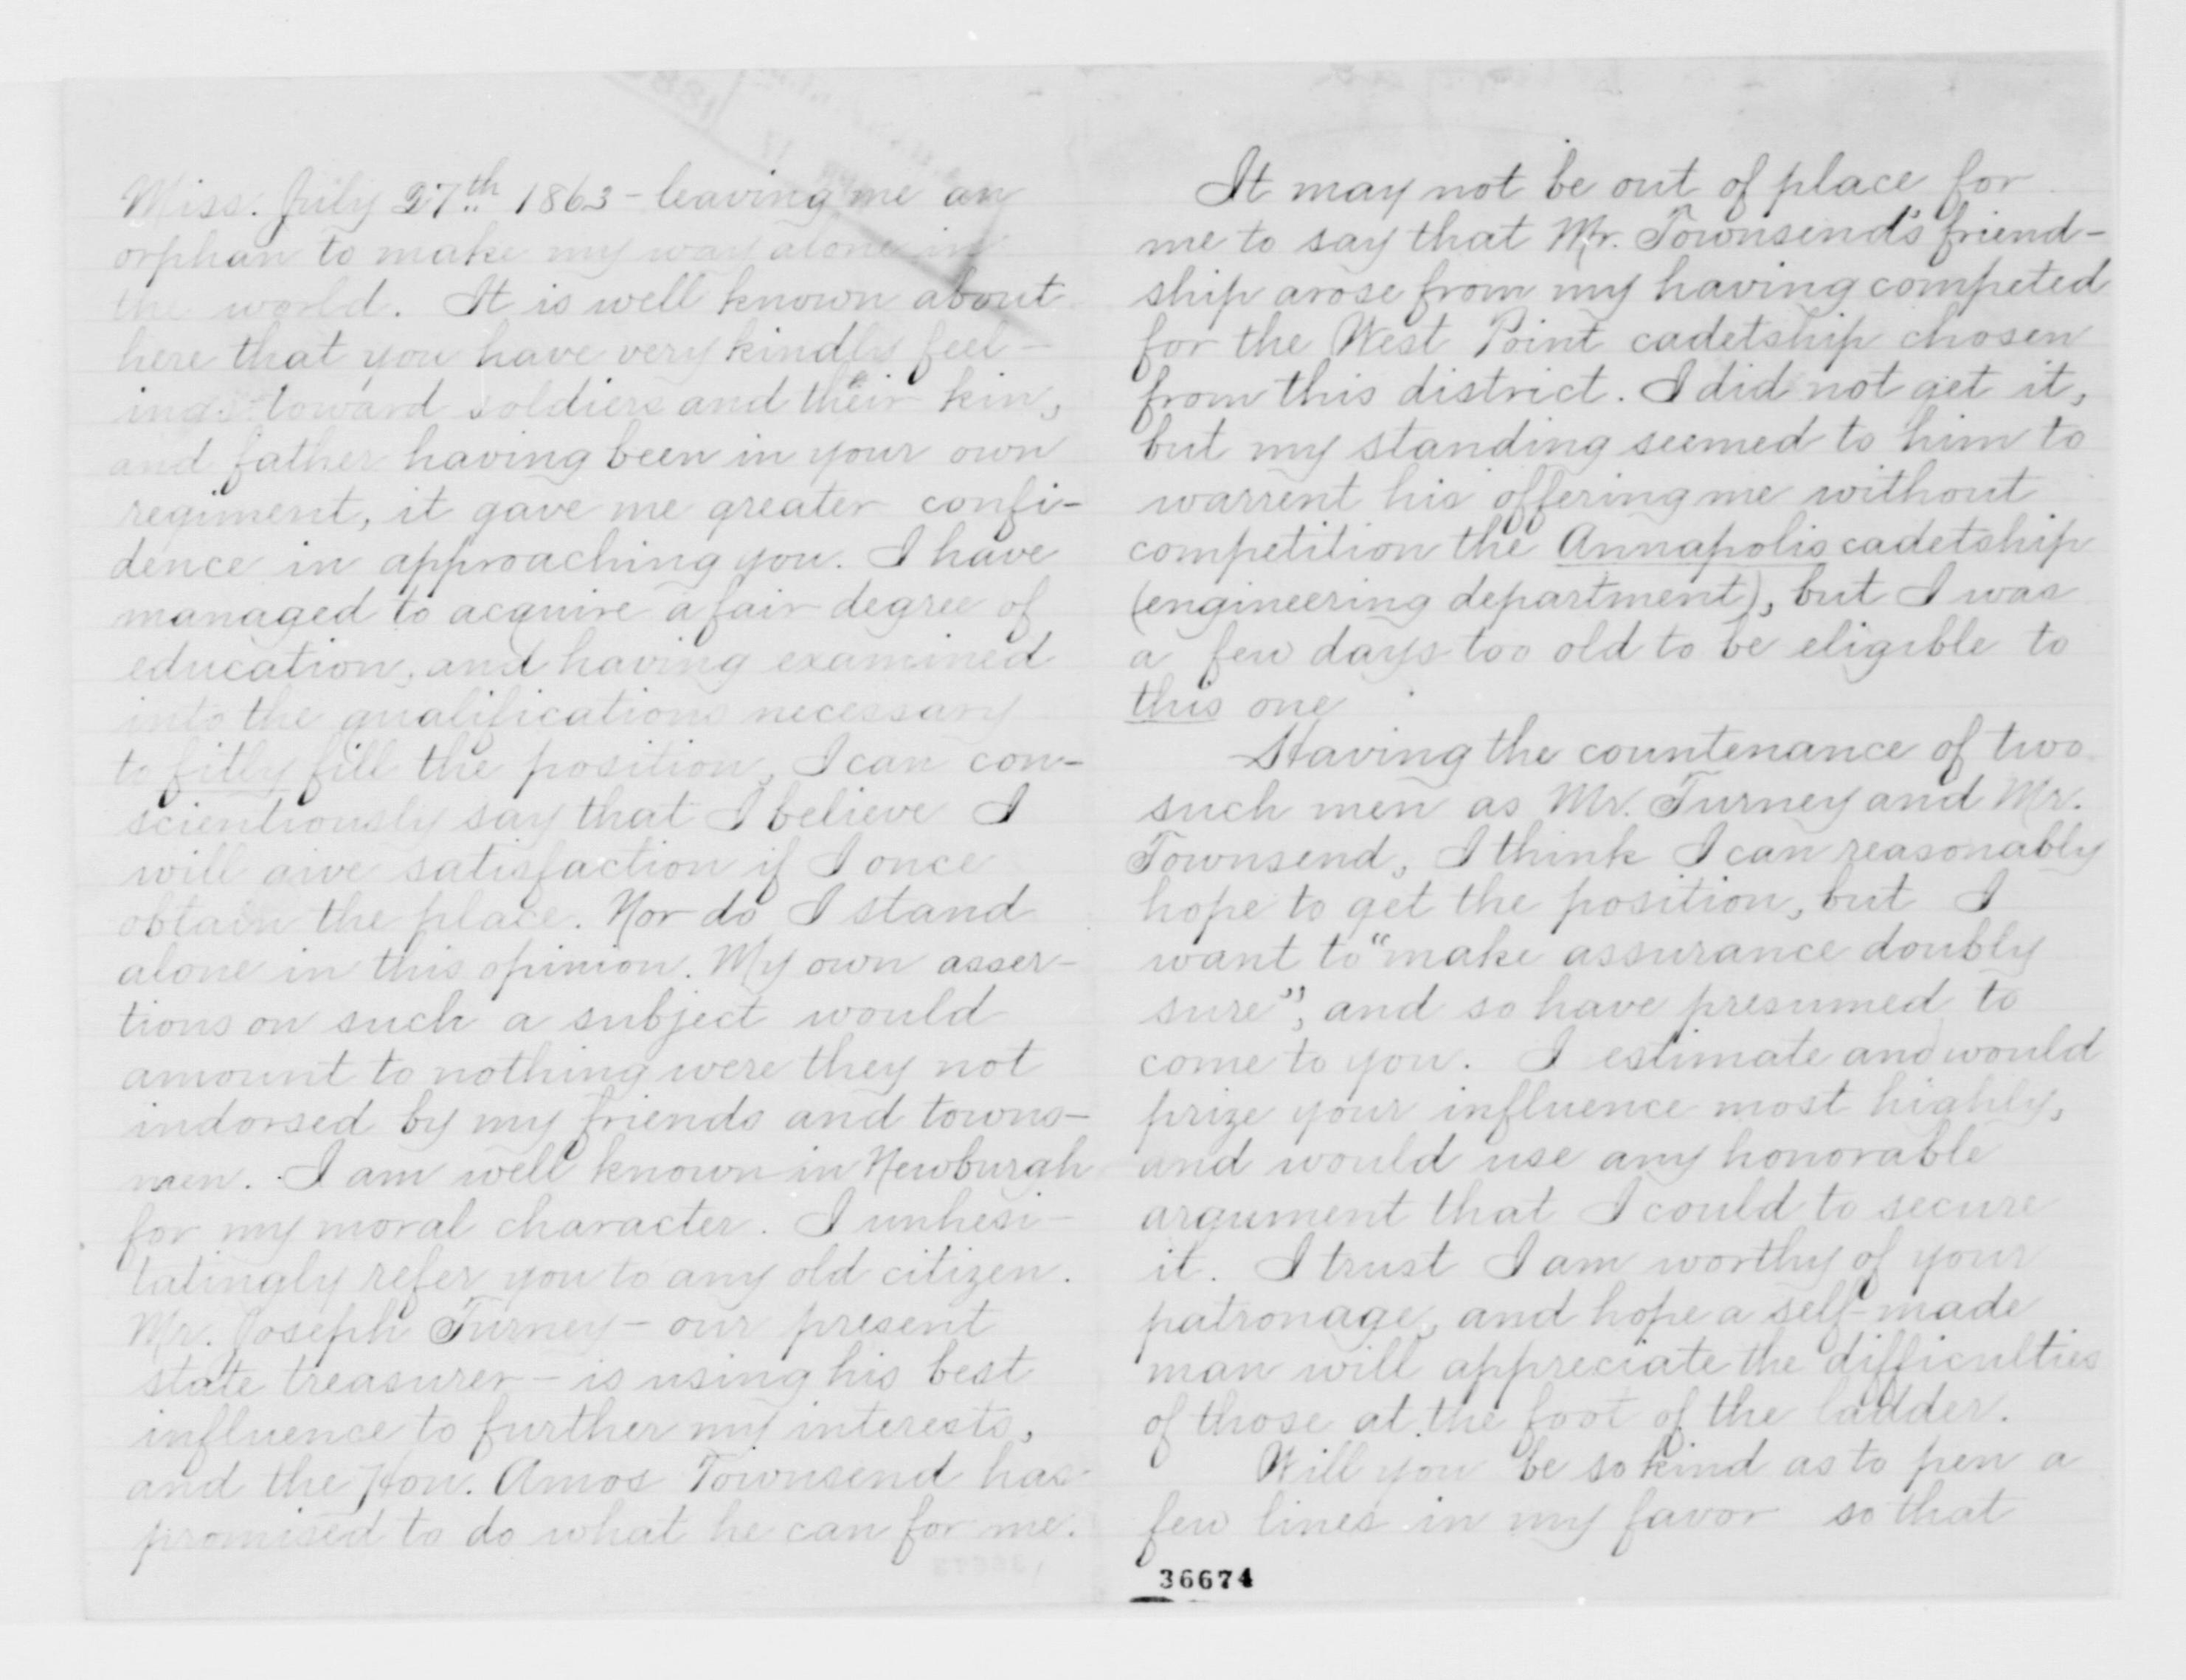 Miss. July 27th 1863 - leaving me an
orphan to make my way alone in
the world. It is well known about
here that you have very kindly feel-
ings toward soldiers and their kin,
and father having been in your own
regiment, it gave me greater confi-
dence in approaching you. I have
managed to acquire a fair degree of
education, and having examined
into the qualifications necessary
to fitly fill the position, I can con-
scientiously say that I believe I
will give satisfaction if I once
obtain the place. Nor do I stand
alone in this opinion. My own asser-
tions on such a subject would
amount to nothing were they not
indorsed by my friends and towns-
men. I am well known in Newburgh
for my moral character. I unhesi-
tatingly refer you to any old citizen.
Mr. Joseph Turney - our present
state treasurer - is using his best
influence to further my interests,
and the Hon. Amos Townsend has
promised to do what he can for me.
It may not be out of place for
me to say that Mr. Townsend's friend-
ship arose from my having competed
for the West Point cadetship chosen
from this district. I did not get it,
but my standing seemed to him to
warrent his offering me without
competition the Annapolis cadetship
(engineering department), but I was
a few days too old to be eligible to
this one
Having the countenance of two
such men as Mr. Turney and Mr.
Townsend, I think I can reasonably
hope to get the position, but I
want to "make assurance doubly
sure", and so have presumed to
come to you. I estimate and would
prize your influence most highly,
and would use any honorable
argument that I could to secure
it. I trust I am worthy of your
patronage, and hope a self-made
man will appreciate the difficulties
of those at the foot of the ladder.
Will you be so kind as to pen a
few lines in my favor so that
36674